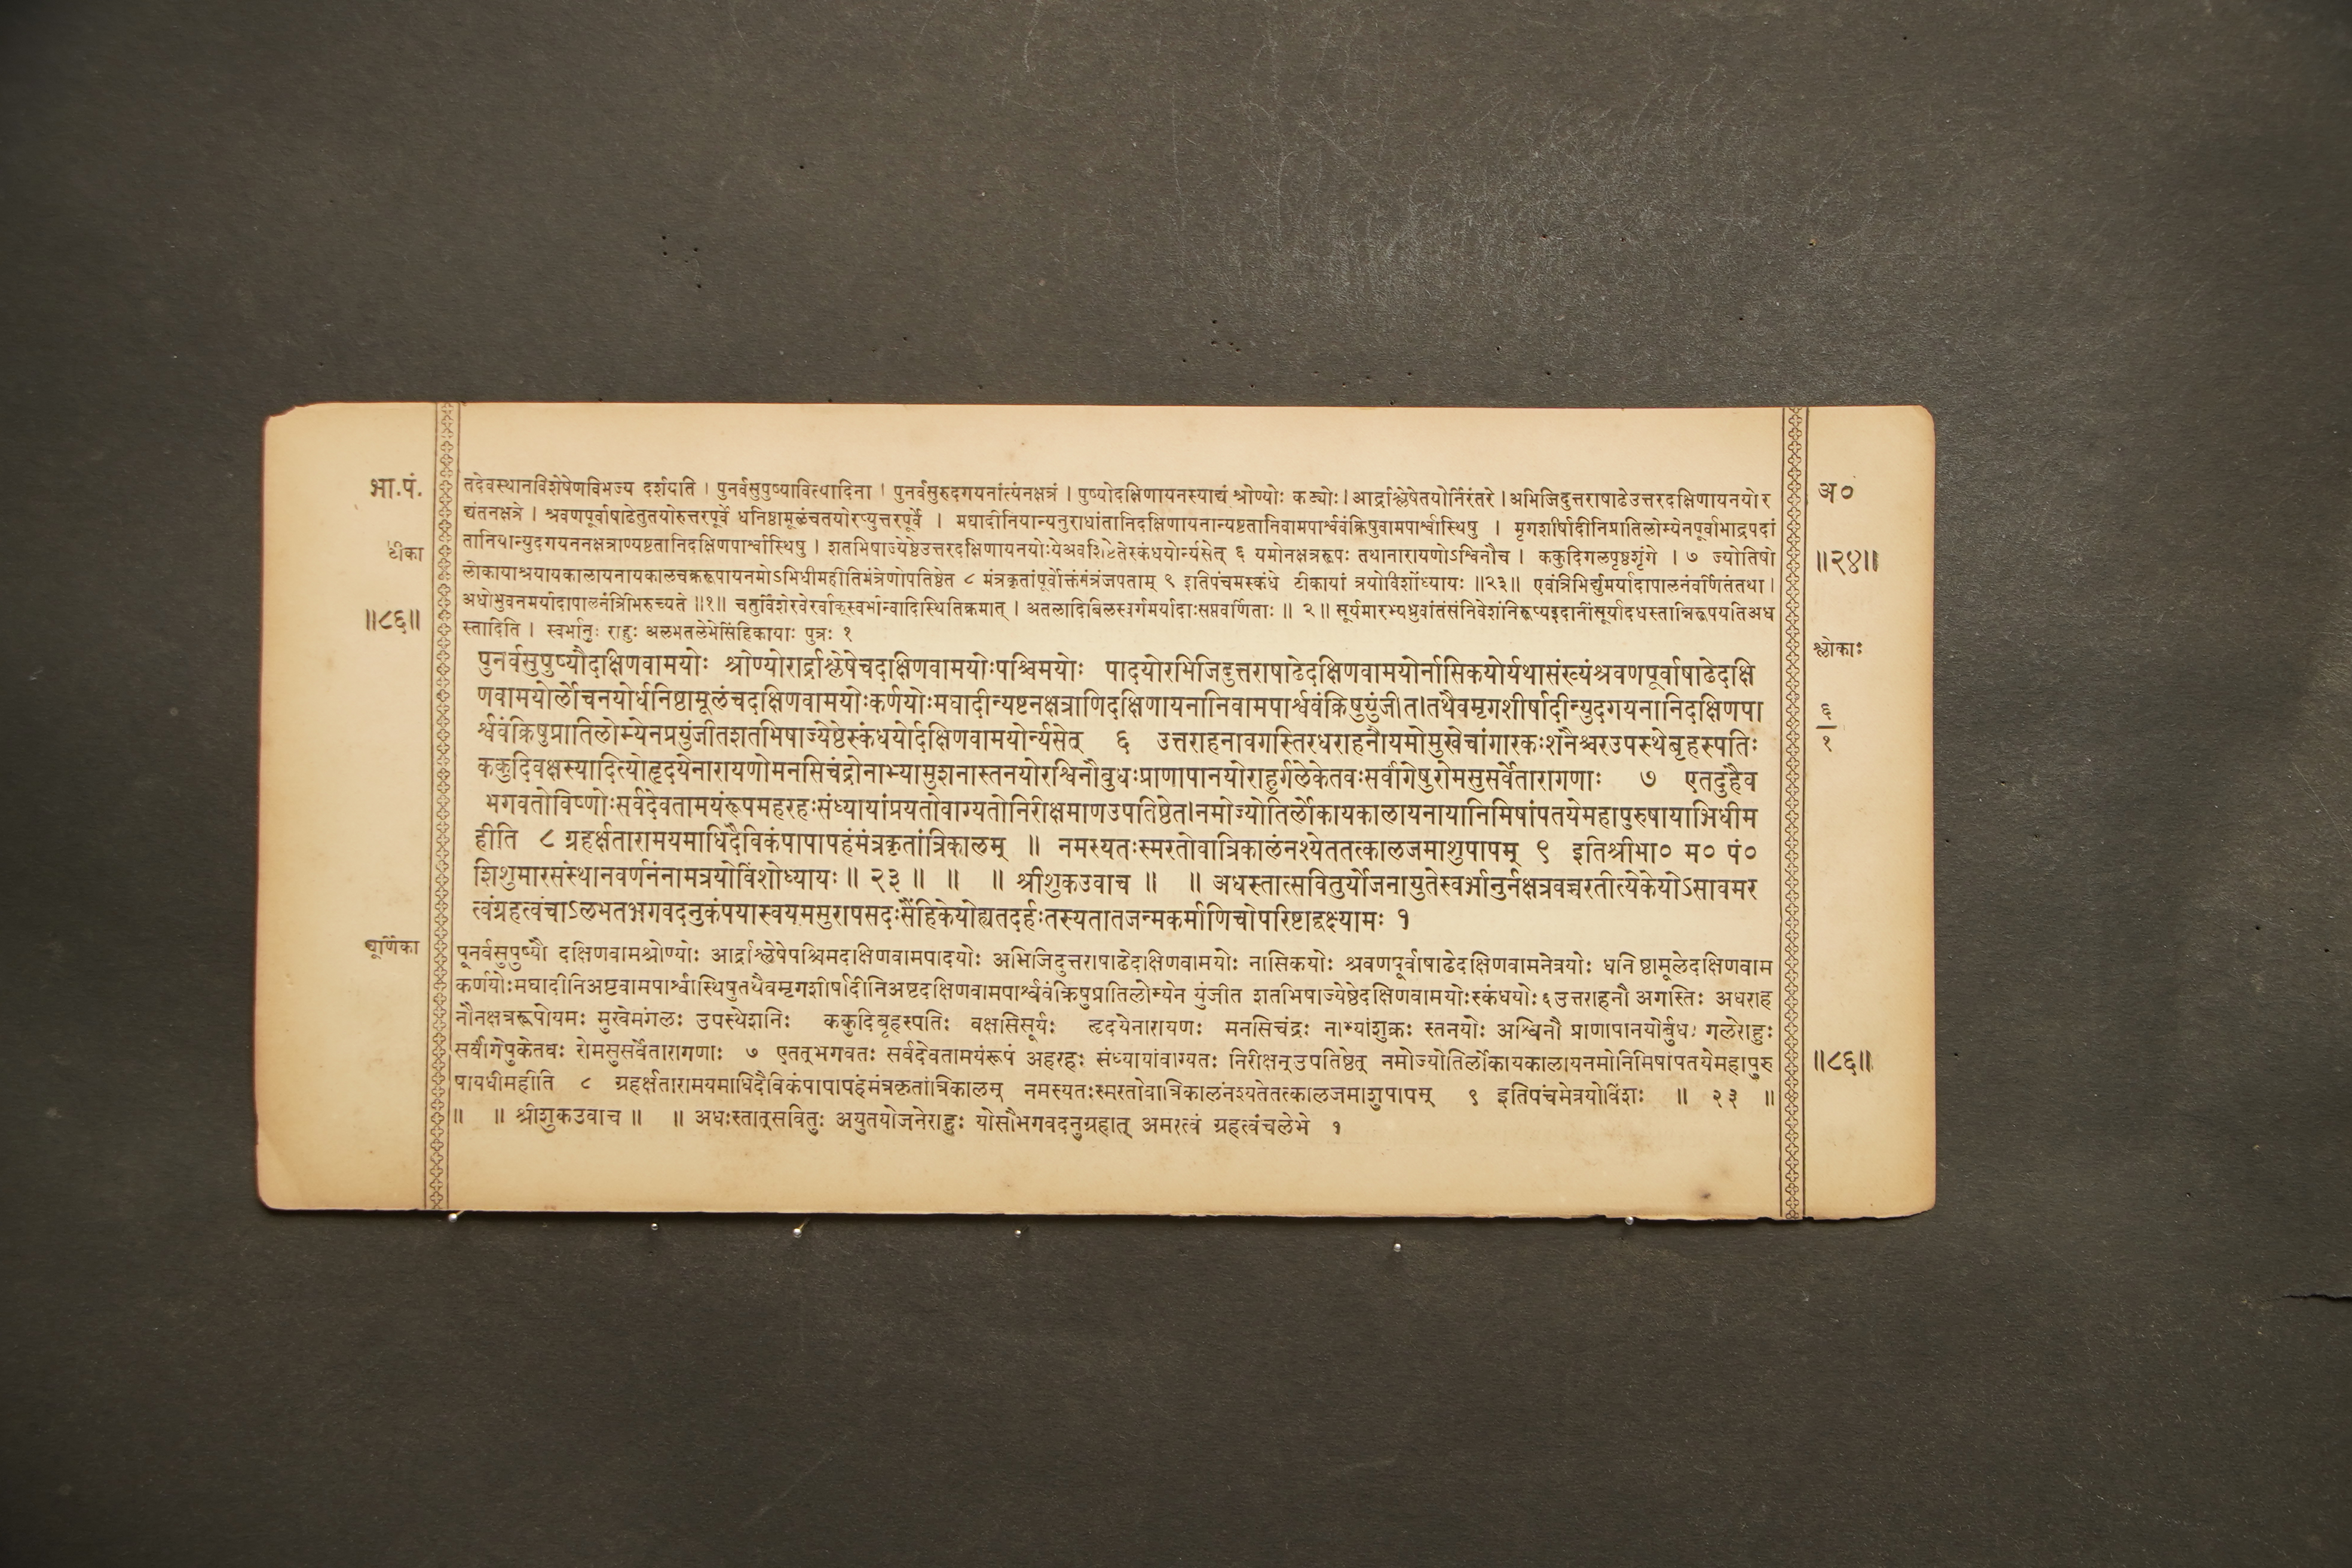 भा.पं.
तदेवस्थानविशेषेणविभज्य दर्शयति । पुनर्वसुपुष्यावित्यादिना । पुनर्वसुरुदगयनांत्यंनक्षत्रं । पुष्योदक्षिणायनस्याद्यं श्रोण्योः कट्योः । आर्द्राश्लेषेतयोर्निरंतरे । अभिजिदुत्तराषाढेउत्तरदक्षिणायनयोर
अ०
द्यंतनक्षत्रे । श्रवणपूर्वाषाढेतुतयोरुत्तरपूर्वे धनिष्ठामूळंचतयोरप्युत्तरपूर्वे । मघादीनियान्यनुराधांतानिदक्षिणायनान्यष्टतानिवामपार्श्ववंक्रिषुवामपार्श्वास्थिषु । मृगशीर्षादीनिप्रातिलोम्येनपूर्वाभाद्रपदां
टीका
तानियान्युदगयननक्षत्राण्यष्टतानिदक्षिणपार्श्वास्थिषु । शतभिषाज्येष्ठेउत्तरदक्षिणायनयोःयेअवशिष्टेतेस्कंधयोर्न्यसेत् ६ यमोनक्षत्ररूपः तथानारायणोऽश्विनौच । ककुदिगलपृष्ठशृंगे । ७ ज्योतिषां
॥२४॥
लोकायाश्रयायकालायनायकालचक्ररूपायनमोऽभिधीमहीतिमंत्रेणोपतिष्ठेत ८ मंत्रकृतांपूर्वोक्तंमंत्रंजपताम् ९ इतिपंचमस्कंधे टीकायां त्रयोविंशोध्यायः ॥२३॥ एवंत्रिभिर्द्युमर्यादापालनंवर्णितंतथा ।
॥८६॥
अधोभुवनमर्यादापालनंत्रिभिरुच्यते ॥१॥ चतुर्विंशेरवेरर्वाक्स्वर्भान्वादिस्थितिक्रमात् । अतलादिबिलस्वर्गमर्यादाःसप्तवर्णिताः ॥ २॥ सूर्यमारभ्यध्रुवांतंसंनिवेशंनिरूप्यइदानींसूर्यादधस्तान्निरूपयतिअध
स्तादिति । स्वर्भानुः राहुः अलभतलेभेसिंहिकायाः पुत्रः १
श्लोकाः
पुनर्वसुपुष्यौदक्षिणवामयोः श्रोण्योरार्द्राश्लेषेचदक्षिणवामयोःपश्चिमयोः पादयोरभिजिदुत्तराषाढेदक्षिणवामयोर्नासिकयोर्यथासंख्यंश्रवणपूर्वाषाढेदक्षि
णवामयोर्लोचनयोर्धनिष्ठामूलंचदक्षिणवामयोःकर्णयोःमघादीन्यष्टनक्षत्राणिदक्षिणायनानिवामपार्श्ववंक्रिषुयुंजीत।तथैवमृगशीर्षादीन्युदगयनानिदक्षिणपा
६
१
र्श्ववंक्रिषुप्रातिलोम्येनप्रयुंजीतशतभिषाज्येष्ठेस्कंधयोर्दक्षिणवामयोर्न्यसेत् ६ उत्तराहनावगस्तिरधराहनौयमोमुखेचांगारकःशनैश्चरउपस्थेबृहस्पतिः
ककुदिवक्षस्यादित्योहृदयेनारायणोमनसिचंद्रोनाभ्यामुशनास्तनयोरश्विनौबुधःप्राणापानयोराहुर्गलेकेतवःसर्वांगेषुरोमसुसर्वेतारागणाः ७ एतदुहैव
भगवतोविष्णोःसर्वदेवतामयंरूपमहरहःसंध्यायांप्रयतोवाग्यतोनिरीक्षमाणउपतिष्ठेत।नमोज्योतिर्लोकायकालायनायानिमिषांपतयेमहापुरुषायाभिधीम
हीति ८ ग्रहर्क्षतारामयमाधिदैविकंपापापहंमंत्रकृतांत्रिकालम् ॥ नमस्यतःस्मरतोवात्रिकालंनश्येततत्कालजमाशुपापम् ९ इतिश्रीभा० म० पं०
शिशुमारसंस्थानवर्णनंनामत्रयोविंशोध्यायः ॥ २३ ॥ ॥ ॥ श्रीशुकउवाच ॥ ॥ अधस्तात्सवितुर्योजनायुतेस्वर्भानुर्नक्षत्रवच्चरतीत्येकेयोऽसावमर
त्वंग्रहत्वंचाऽलभतभगवदनुकंपयास्वयमसुरापसदःसैंहिकेयोह्यतदर्हःतस्यतातजन्मकर्माणिचोपरिष्टाद्वक्ष्यामः १
चूर्णिका
पूनर्वसुपुष्यौ दक्षिणवामश्रोण्योः आर्द्राश्लेषेपश्चिमदक्षिणवामपादयोः अभिजिदुत्तराषाढेदक्षिणवामयोः नासिकयोः श्रवणपूर्वाषाढेदक्षिणवामनेत्रयोः धनिष्ठामूलेदक्षिणवाम
कर्णयोःमघादीनिअष्टवामपार्श्वास्थिषुतथैवमृगशीर्षादीनिअष्टदक्षिणवामपार्श्ववंक्रिषुप्रातिलोम्येन युंजीत शतभिषाज्येष्ठेदक्षिणवामयोःस्कंधयोः६उत्तराहनौ अगस्तिः अधराह
नौनक्षत्ररूपोयमः मुखेमंगलः उपस्थेशनिः ककुदिबृहस्पतिः वक्षसिसूर्यः हृदयेनारायणः मनसिचंद्रः नाभ्यांशुक्रः स्तनयोः अश्विनौ प्राणापानयोर्बुधः गलेराहुः
सर्वांगेषुकेतवः रोमसुसर्वेतारागणाः ७ एतत्भगवतः सर्वदेवतामयंरूपं अहरहः संध्यायांवाग्यतः निरीक्षन्उपतिष्ठेत् नमोज्योतिर्लोकायकालायनमोनिमिषांपतयेमहापुरु
॥८६॥
षायधीमहीति ८ ग्रहर्क्षतारामयमाधिदैविकंपापापहंमंत्रकृतांत्रिकालम् नमस्यतःस्मरतोवात्रिकालंनश्यतेतत्कालजमाशुपापम् ९ इतिपंचमेत्रयोविंशः ॥ २३ ॥
॥ ॥ श्रीशुकउवाच ॥ ॥ अधःस्तात्सवितुः अयुतयोजनेराहुः योसौभगवदनुग्रहात् अमरत्वं ग्रहत्वंचलेभे १